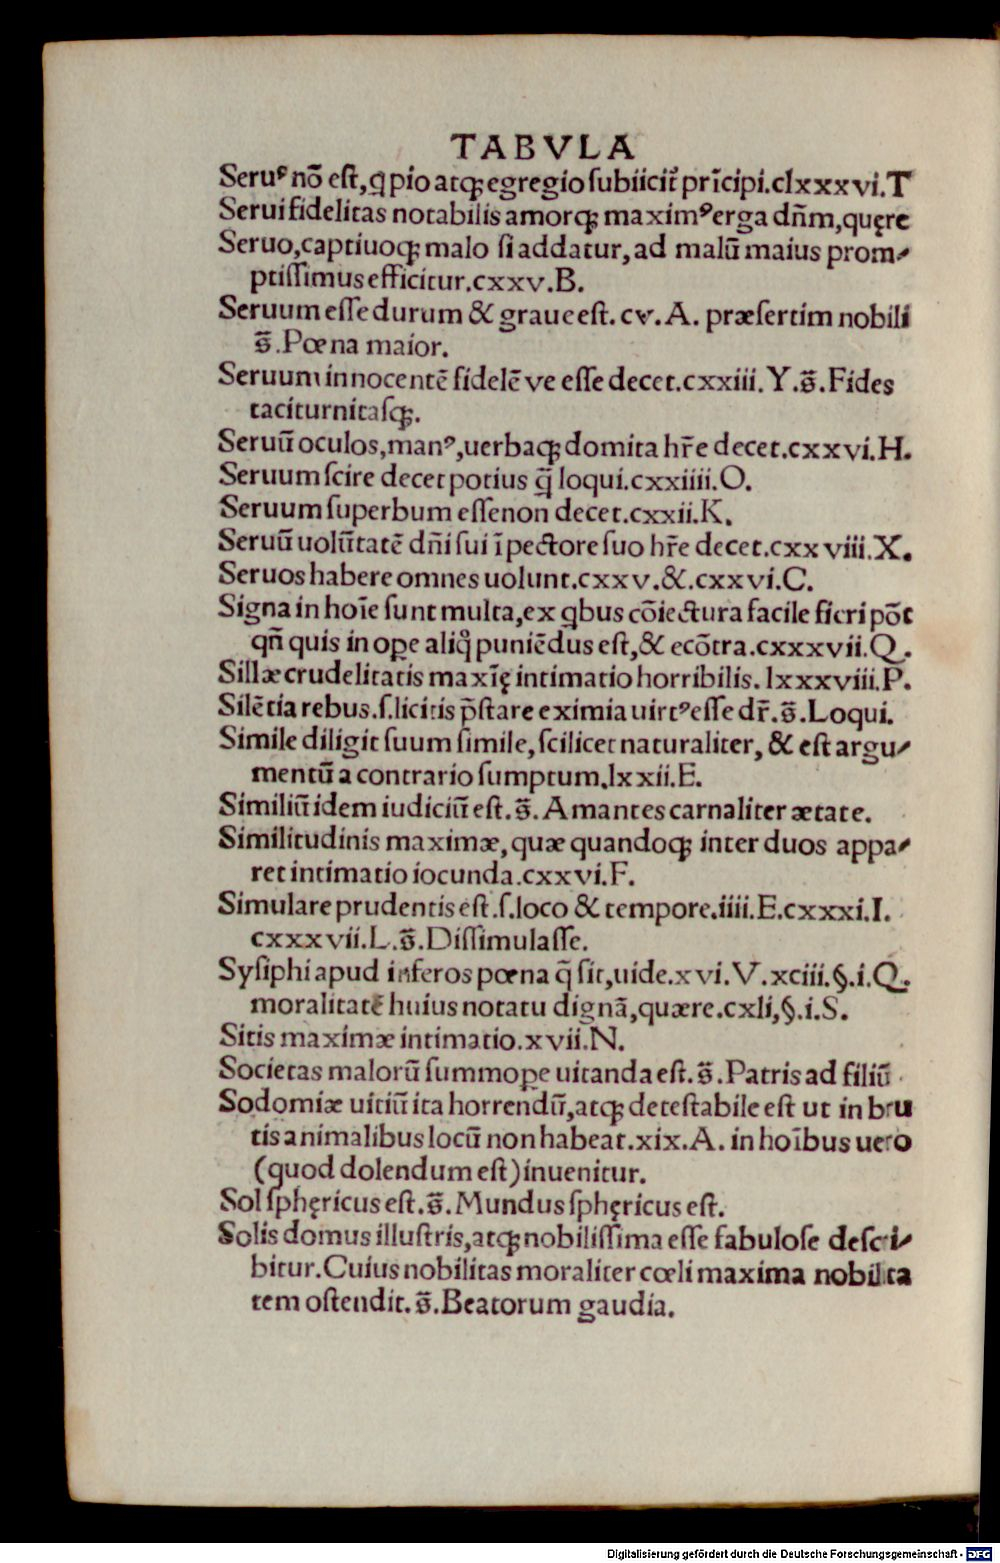 TABVLA
Seruꝰ nō est, ꝗ pio atqꝫ egregio subiicit̃ prīcipi.clxxxvi.T
Serui fidelitas notabilis amorqꝫ maximꝰ erga dñm, quęre
Seruo, captiuoqꝫ malo si addatur, ad malū maius prom-
ptissimus efficitur.cxxv.B.
Seruum esse durum & graue est. cv. A. præsertim nobili
s̄. Pœna maior.
Seruum innocentē fidelē ve esse decet.cxxiii.Y.s̄.Fides
taciturnitasqꝫ.
Seruū oculos, manꝰ, uerbaqꝫ domita hr̄e decet.cxxvi.H.
Seruum scire decet potius q̄ loqui.cxxiiii.O.
Seruum superbum esse non decet.cxxii.K.
Seruū uolūtatē dñi sui ī pectore suo hr̄e decet.cxxviii.X.
Seruos habere omnes uolunt.cxxv.&.cxxvi.C.
Signa in hoīe sunt multa, ex ꝗbus cōiectura facile fieri pōt
qñ quis inope aliꝗ̊ puniēdus est, & ecōtra.cxxxvii.Q.
Sillæ crudelitatis maxīę intimatio horribilis. lxxxviii.P.
Silētia rebus.s.licitis p̄stare eximia uirtꝰ esse dr̄.s̄.Loqui.
Simile diligit suum simile, scilicet naturaliter, & est argu-
mentū a contrario sumptum.lxxii.E.
Similiū idem iudiciū est.s̄. Amantes carnaliter ætate.
Similitudinis maximæ, quæ quandoqꝫ inter duos appa-
ret intimatio iocunda.cxxvi.F.
Simulare prudentis est.s.loco & tempore.iiii.E.cxxxi.I.
cxxxvii.L.s̄.Dissimulasse.
Sysiphi apud inferos pœna q̄ sit, uide.xvi.V.xciii.§.i.Q.
moralitatē huius notatu dignā, quære.cxli,§.i.S.
Sitis maximæ intimatio.xvii.N.
Societas malorū summoꝑe uitanda est.s̄.Patris ad filiū
Sodomiæ uitiū ita horrendū, atqꝫ detestabile est ut in bru
tis animalibus locū non habeat.xix.A. in hoībus uero
(quod dolendum est) inuenitur.
Sol sphęricus est.s̄. Mundus sphęricus est.
Solis domus illustris, atqꝫ nobilissima esse fabulose descri-
bitur. Cuius nobilitas moraliter cœli maxima nobilita
tem ostendit.s̄.Beatorum gaudia.
Digitalisierung gefördert durch die Deutsche Forschungsgemeinschaft - DFG